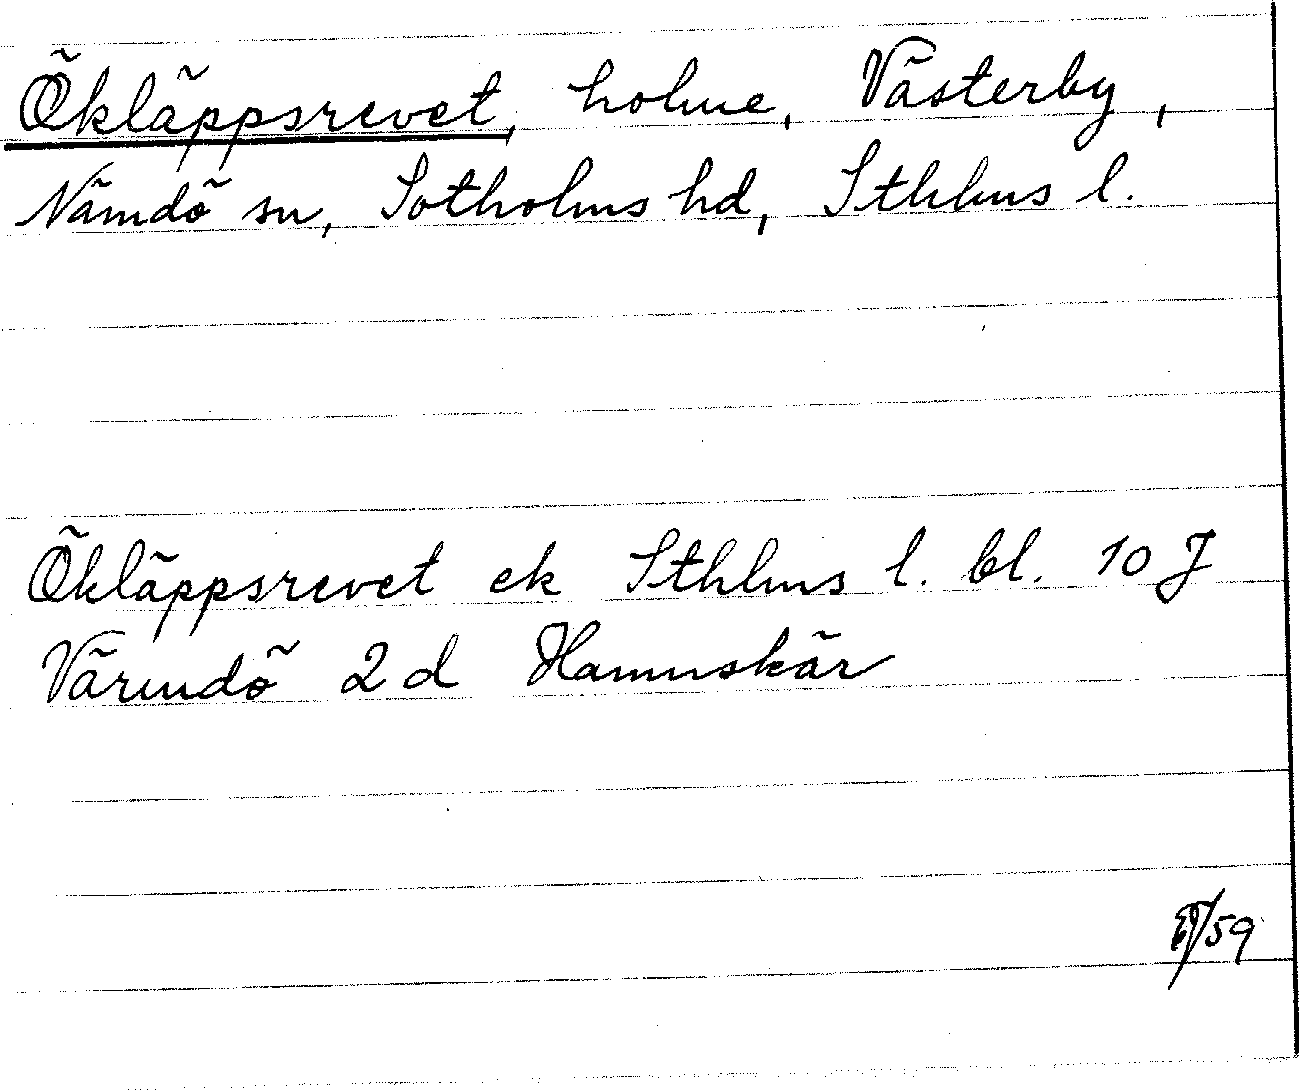 Ökläppsrevet, holme, Västerby,
Nämdö sn, Sotholms hd, Sthlms l.
Ökläppsrevet ek Sthlms l. bl. 10 J
Värmdö 2 d Hamnskär
/59